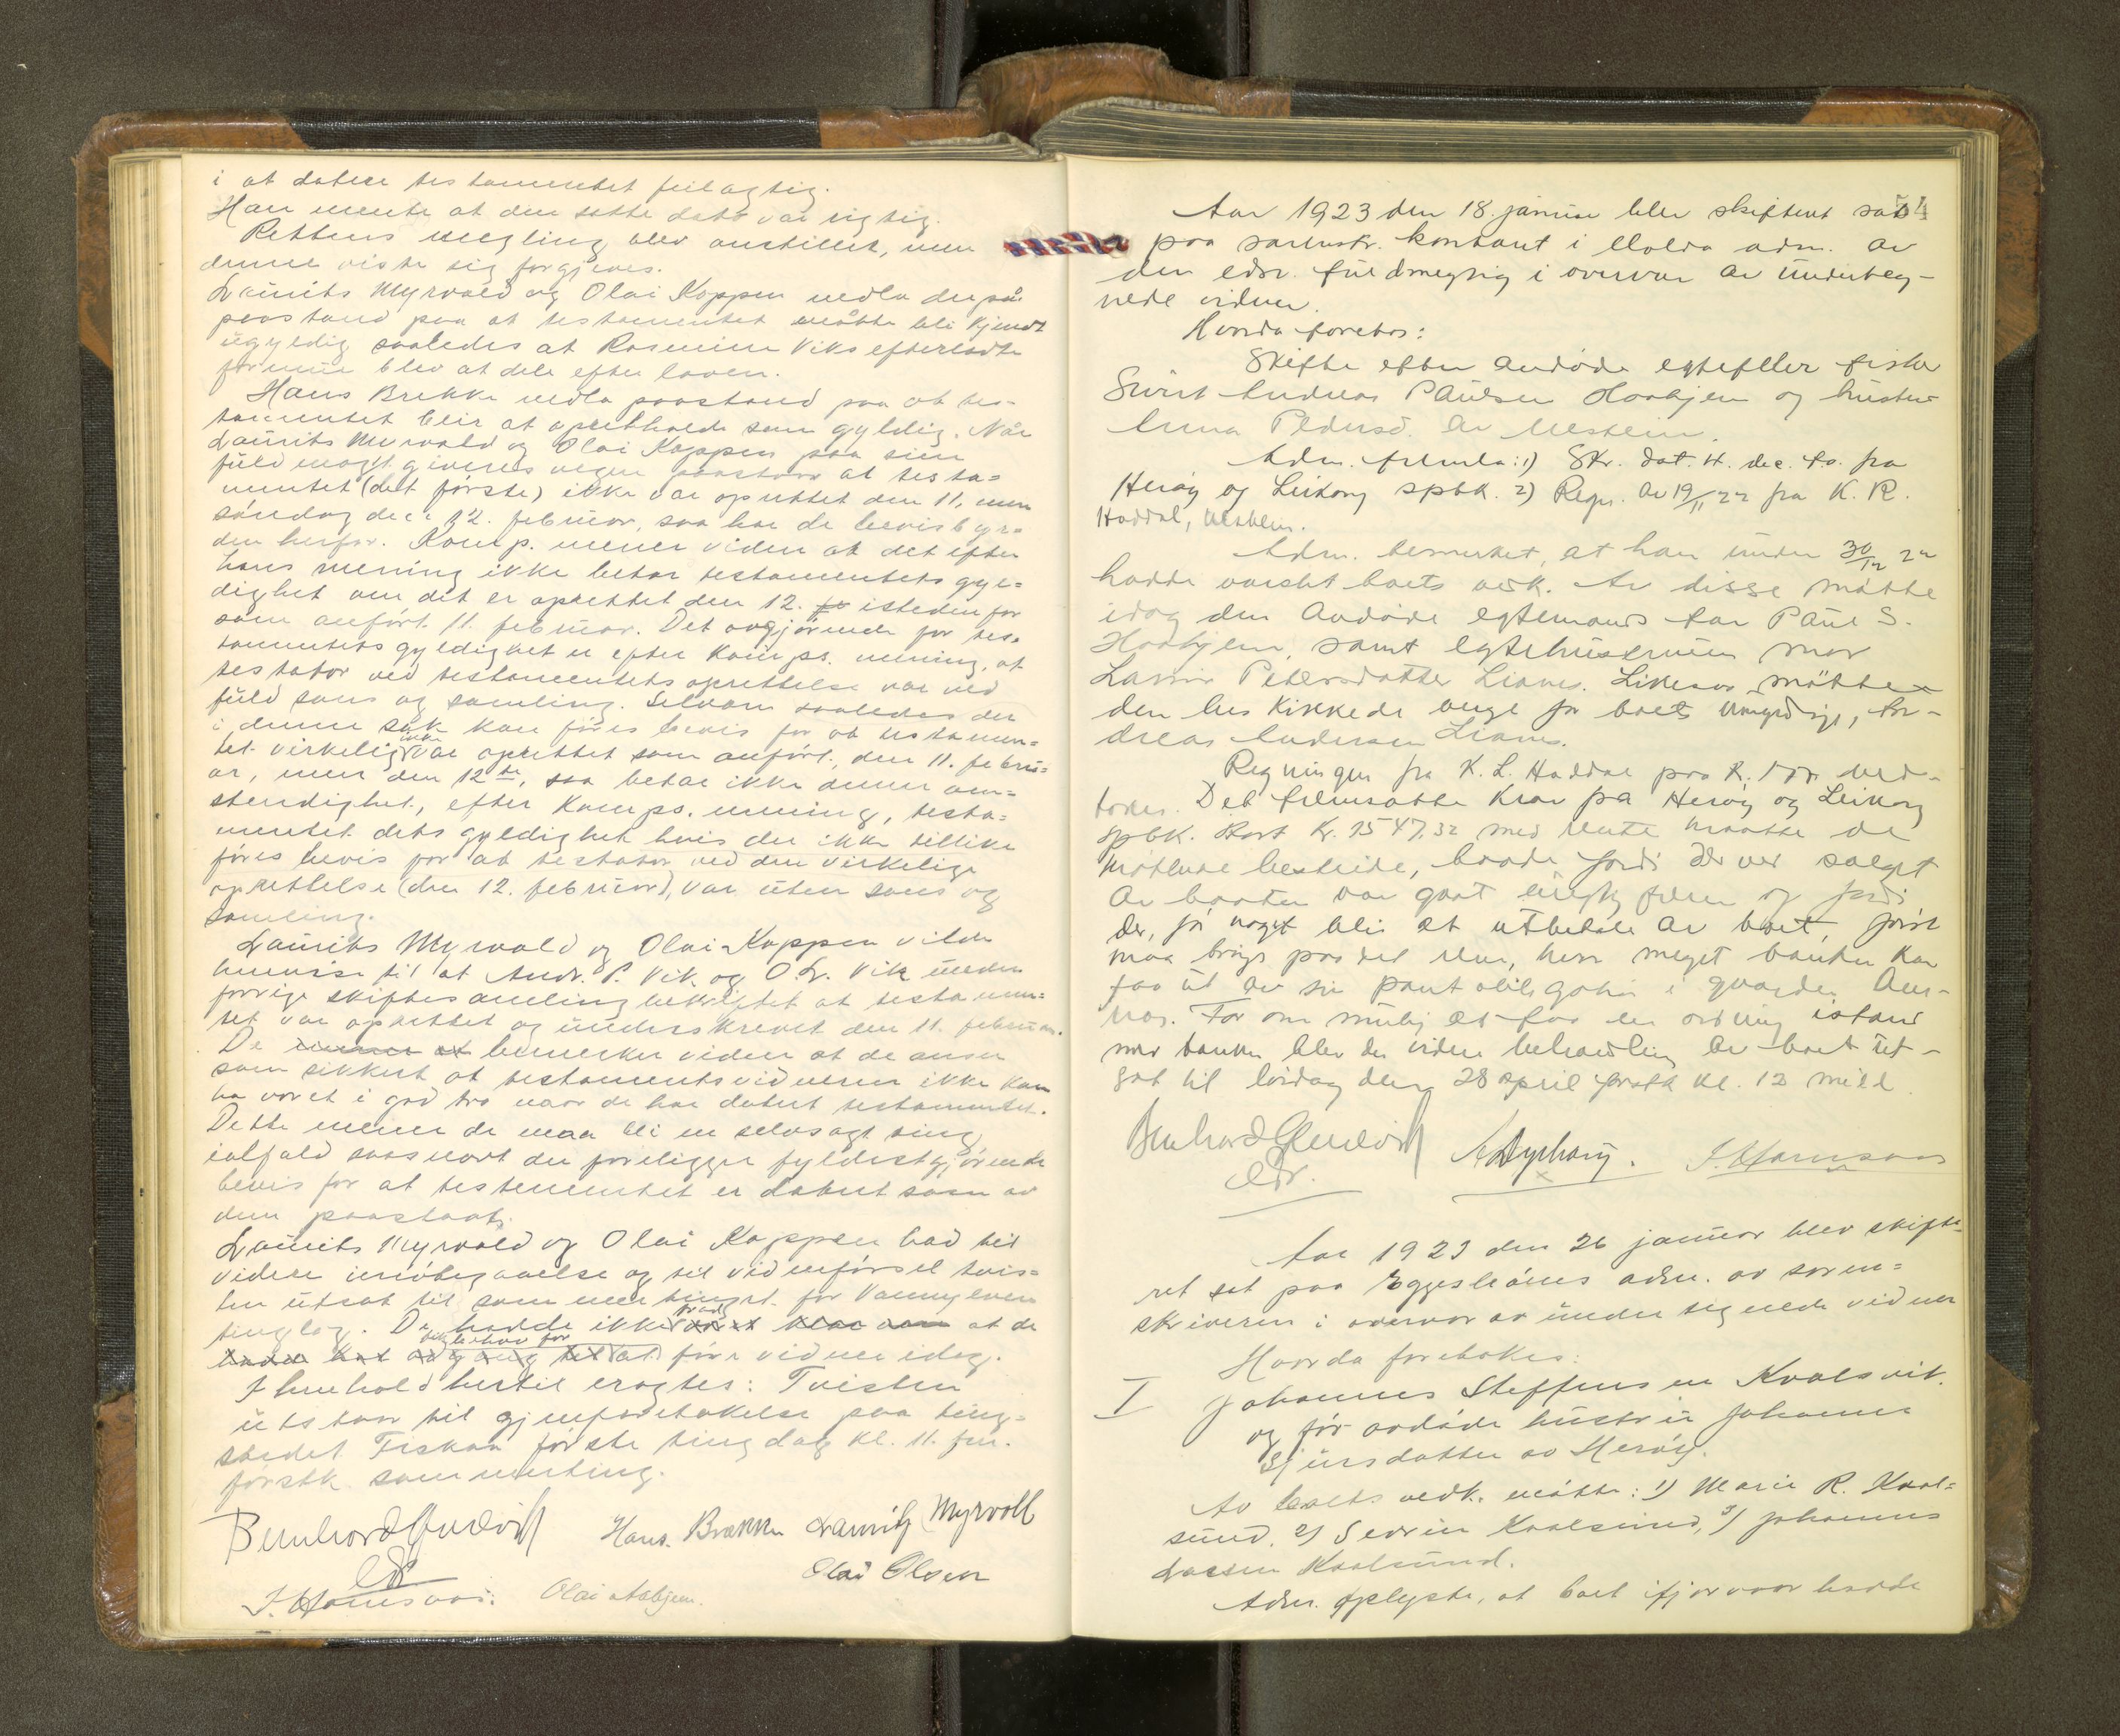 i at datere testamentet feilagtig.
Han mente at den satte dato var rigtig.
Rettens megling blev anstillet, men
denne viste sig forgjeves.
Laurits Myrvold og Olai Koppen nedla derpaa
paastand paa at testamentet måtte bli kjendt
ugyldig saaledes at Rasmine Viks efterladte
formue blev at dele efter loven.
Hans Brekke nedla paastand paa at tes-
tamentet blir at opretholde som gyldig. Når
Laurits Myrvold og Olai Koppen paa sine
fuldmagtgiveres vegne paastaar at testa-
mentet (det første) ikke var oprettet den 11. men
søndag den 12. februar, saa har de bevisbyr-
den herfor. Komp. mener viden at det efter
hans mening ikke betar testamentets gyl-
dighet om det er oprettet den 12. fe isteden for
som anført 11. februar. Det avgjørende for tes-
tamentets gyldighet er efter Komps. mening, at
testator ved testamentets oprettelse var ved
fuld sans og samling. Selvom saaledes der
i denne sak kan føres bevis for at testamen-
tet virkelig ikke var oprettet som anført, den 11. febru-
ar, men den 12te, saa betar ikke denne om-
stendighet, efter Komps. mening, testa-
mentet dets gyldighet hvis der ikke tillike
føres bevis for at testator ved den virkelige
oprettelse (den 12. februar), var uten sans og
samling.
Laurits Myrvold og Olai Koppen vilde
henvise til at Andr. P. Vik og O. L. Vik under
forrige skiftesamling bekreftet at testamen-
tet var oprettet og underskrevet den 11. februar.
De mener at bemerker viden at de anser
som sikkert at testamentsvidnerne ikke kan
ha vøret i god tro naar de har datert testamentet.
Dette mener de maa bli en selvsagt ting
ialfald saasnart der foreligger fyldestgjørende
bevis for at testementet er datert som av
dem paastaat.
Laurits Myrvold og Olai Koppen bad til
videre imøtegaaelse og til vidneførsel tvis-
ten utsat til sommertinget for Vannylven
tinglag. De hadde ikke at de
at føre vidner idag.
I henhold hertil eragtes: Tvisten
utstaar til gjenforetakelse paa ting-
stedet Fiskaa første tingdag kl. 11. fm.
førstk. sommerting.
Hans. Brekke Lauritz Myrvoll
Olai Olsen
Olai Aabjem.
Aar 1923 den 18. januar blev skifteret sat 54
paa sorenskr. kontant i Volda adm. av
den edsv. fuldmegtig i overvær av underteg-
nede vidner.
Hvorda foretos:
Skifte efter avdøde egtefeller fisker
Sivert Andreas Paulsen Haabjem og hustru
Anna Pedersd. av Ulstein.
Adm. fremla: 1) Skr. dat. 4. dec. f.a. fra
Herøy og Leikong spbk. 2) Regn. av 19/11 22 fra K. R.
Haddal, Ulstein.
Adm. bemerket, at han under 30/12 22
hadde varslet boets vedk. Av disse møtte
idag den avdøde egtemands far Paul S.
Haabjem, samt egtehustruens mor
Lavine Petersdatter Lianes. Likesaa møtte
den beskikkede verge for boets umyndige, An-
dreas Andersen Lianes.
Regningen fra K. L. Haddal paa K. ved-
toges. Det fremsatte krav fra Herøy og Leikong
spbk. stort Kr. 1547.32 med rente maatte de
møtende bestride, baade fordi der ved salget
av baaten var gaat frem og fordi
der, før noget blir at utbetale av boet, først
maa bringes paa det rene, hvor meget banken kan
faa ut av sin pantobligation i gaarden Aur-
nes. For om mulig at faa en ordning istand
med banken blev den videre behandling av boet ut-
sat til lørdag den 28 april førstk kl. 12 midd
Aar 1923 den 26 januar blev skifte-
ret sat paa Eggesbønes adm. av soren-
skriveren i overvær av undertegnede vidner
Hvorda foretokes:
I Johannes Steffensen Kvalsvik
og før avdøde hustru Johanne
Sjursdatter av Herøy.
Av boets vedk. møtte: 1) Marie R. Kval-
sund. 2) Severin Kvalsund, 3) Johannes
Larsen Kvalsund.
Adm. oplyste, at boet ifjor vaar hadde